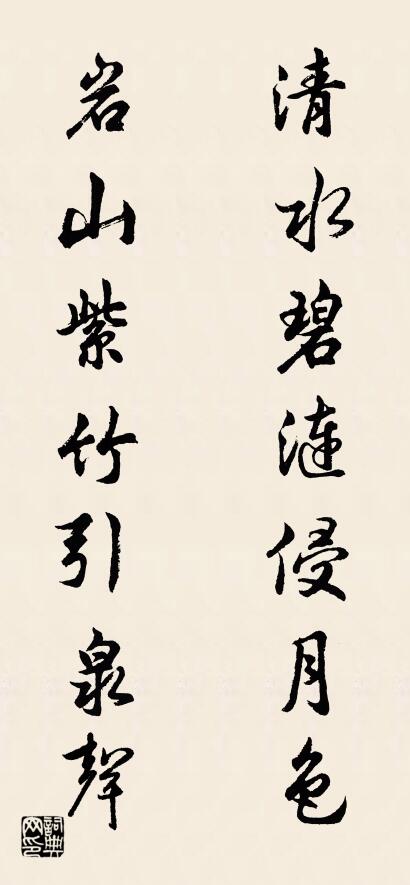 清水碧涟侵月色
岩山紫竹引泉聲
詞典网印